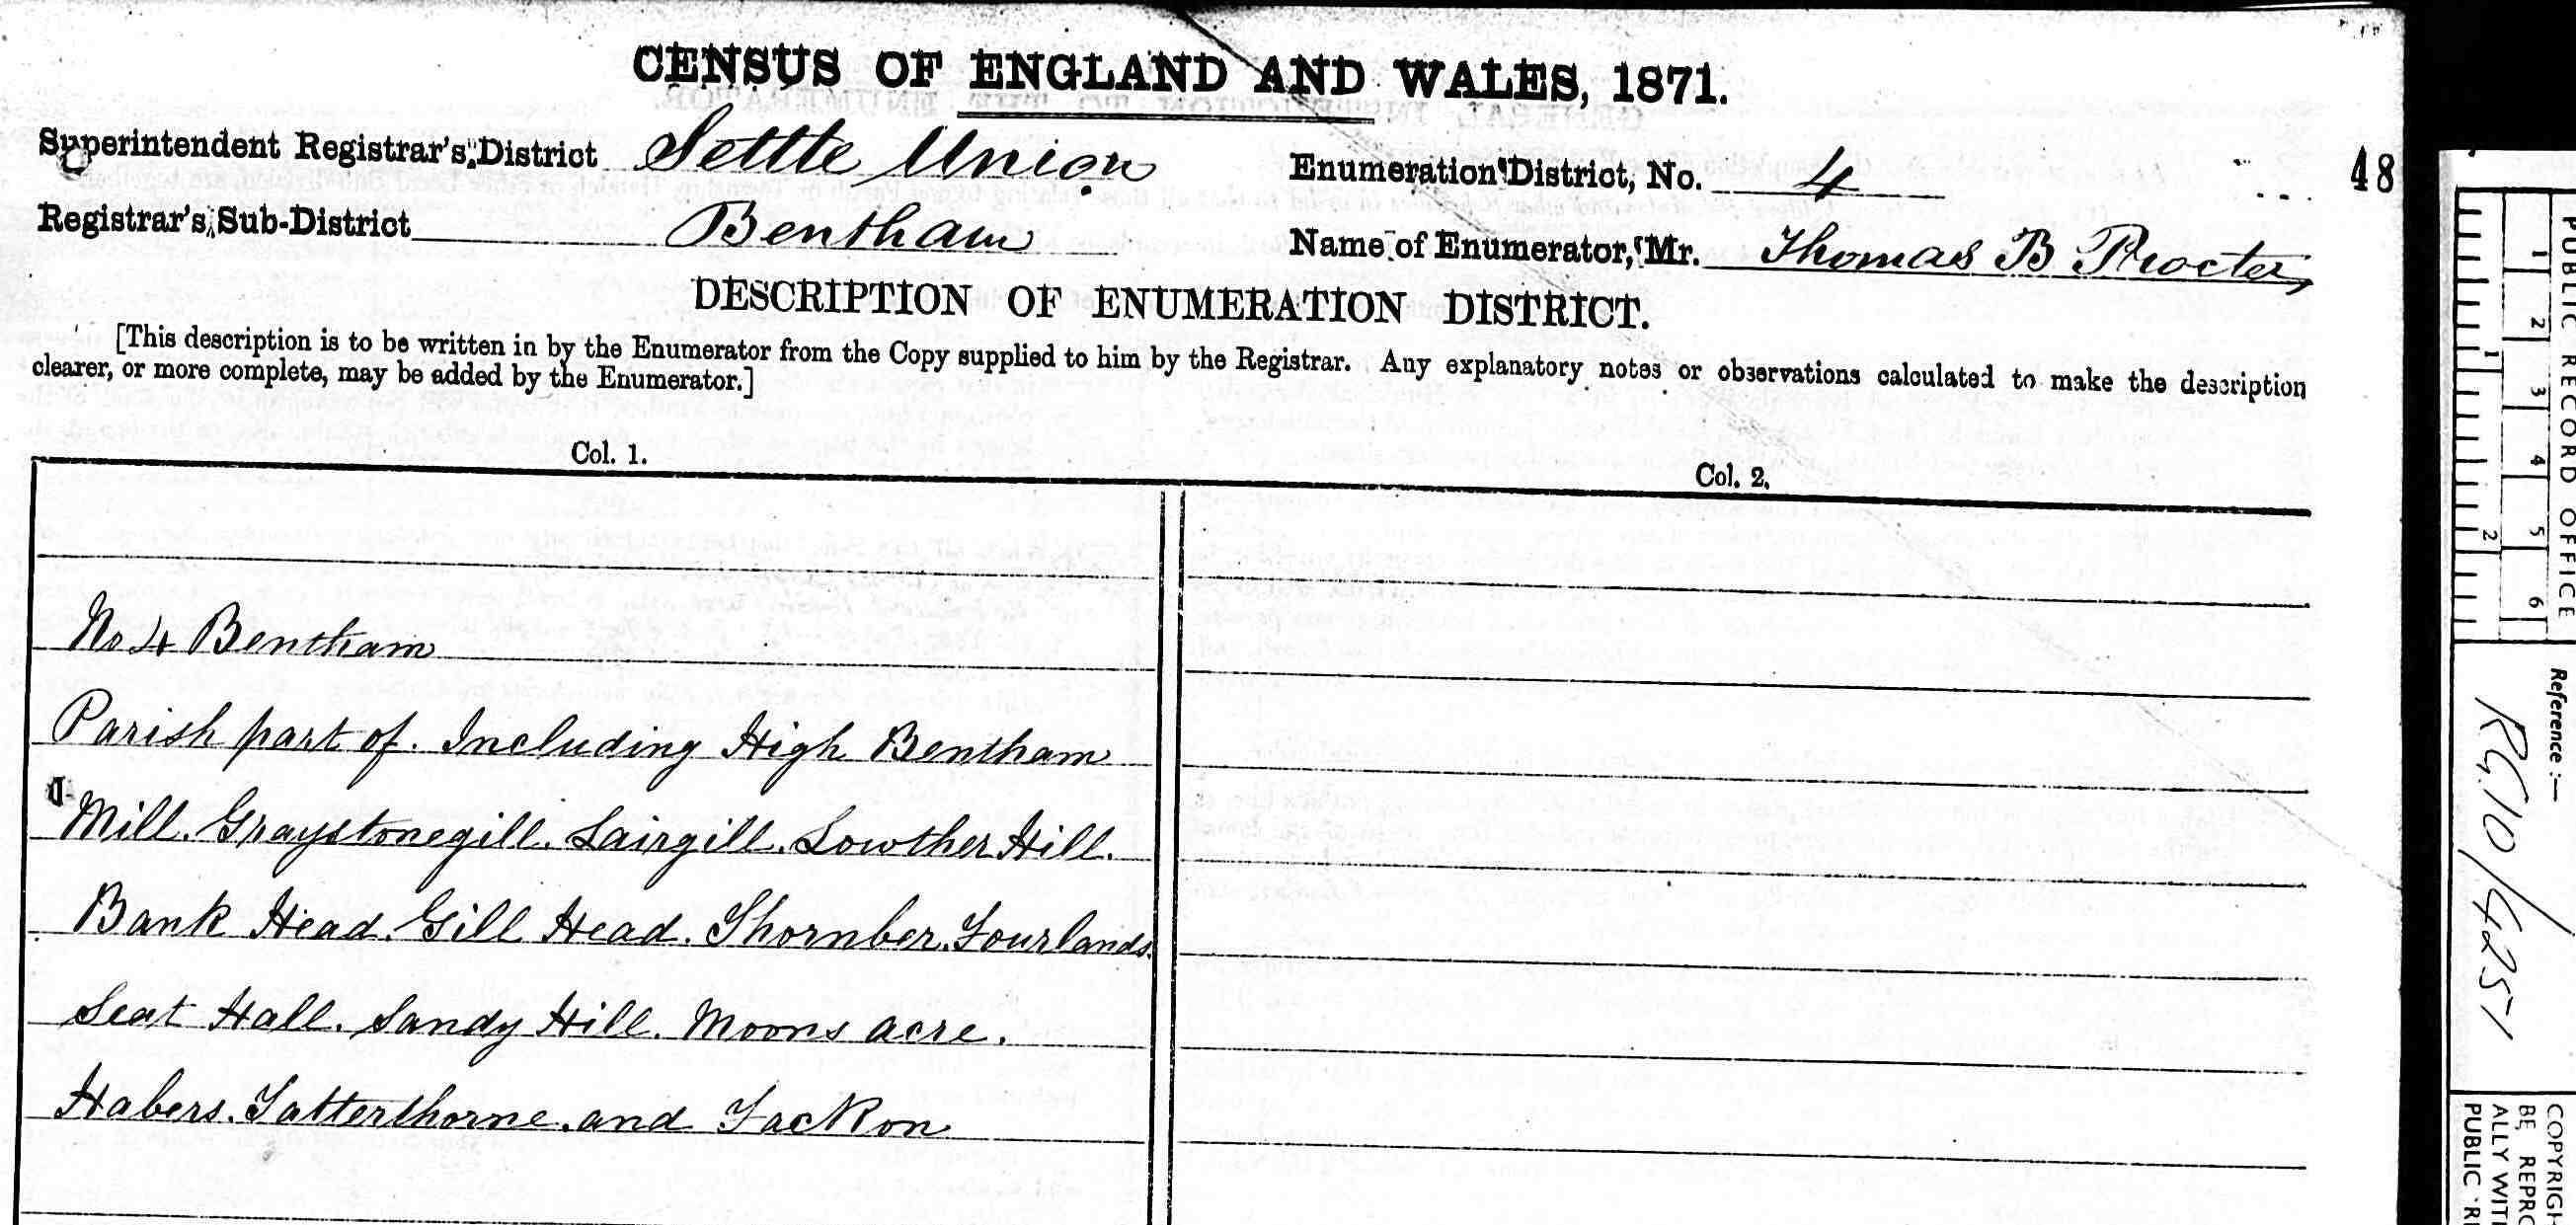 CENSUS OF ENGLAND AND WALES, 1871.
Superintendent Registrar's District Settle Union
Enumeration District, No. 4
48
Registrar's Sub-District Bentham
Name of Enumerator, Mr. Thomas B Procter
DESCRIPTION OF ENUMERATION DISTRICT.
[This description is to be written in by the Enumerator from the Copy supplied to him by the Registrar. Any explanatory notes or observations calculated to make the description
clearer, or more complete, may be added by the Enumerator.]
Col. 1.
Col. 2.
No 4 Bentham
Parish part of. Including High Bentham
Mill. Graystonegill. Lairgill. Lowther Hill.
Bank Head. Gill Head. Thornber. Fourlands.
Scat Hall. Sandy Hill. Moons acre.
Habers. Tatterthorne. and Tackon
PUBLIC RECORD OFFICE
1 2 3 4 5 6
1 2
Reference :—
RG 10/4251
COPYRIGH
BE REPRO
ALLY WIT
PUBLIC RE